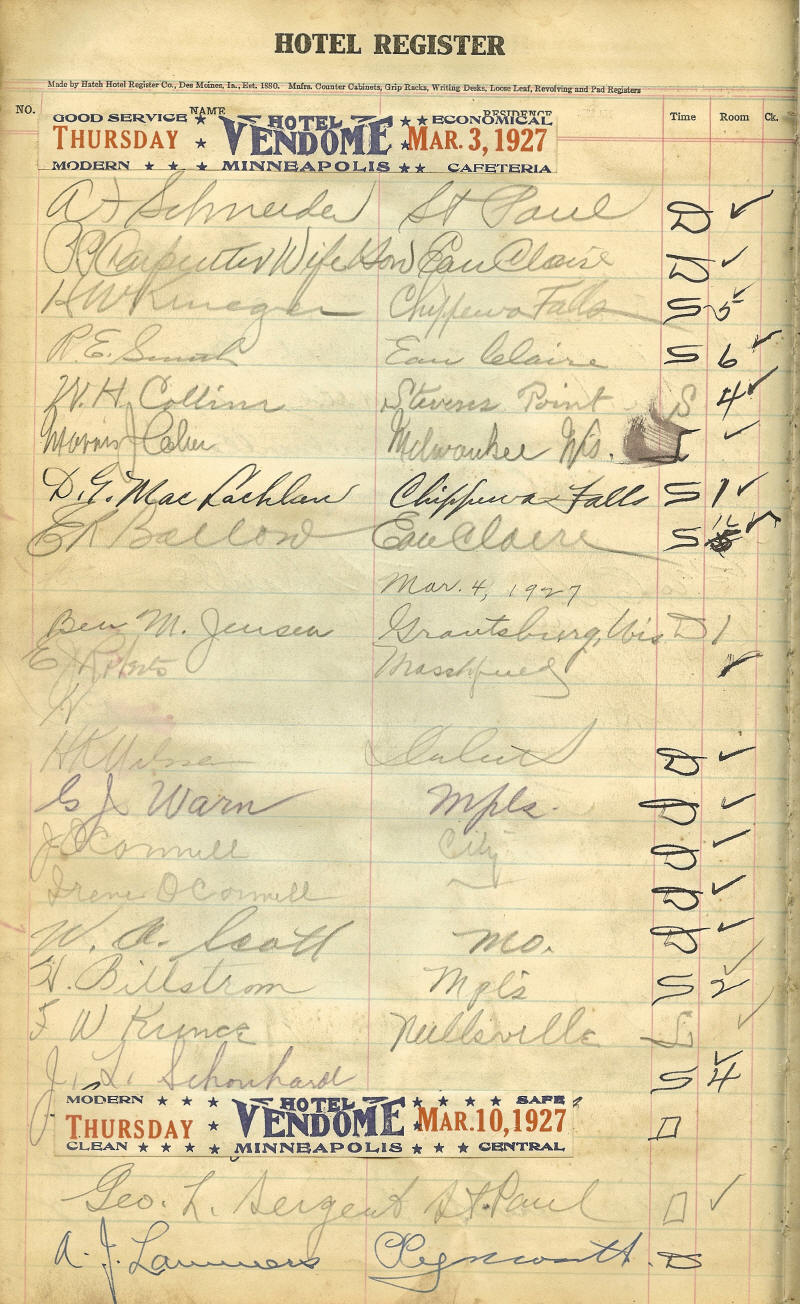 HOTEL REGISTER
Made by Hatch Hotel Register Co., Des Moines, Ia., Est. 1880. Mnfrs. Counter Cabinets, Grip Racks, Writing Desks, Loose Leaf, Revolving and Pad Registers
NO. NAME RESIDENCE Time Room Ck.
GOOD SERVICE ★ HOTEL ★★ ECONOMICAL
THURSDAY ★ VENDOME ★ MAR. 3, 1927
MODERN ★ ★ ★ MINNEAPOLIS ★★ CAFETERIA
A F Schneider St Paul D ✓
Carpenter Wife & Son Eau Claire D ✓
H W Krueger Chippewa Falls S 5 ✓
R. E. Smith Eau Claire S 6 ✓
W. H. Collins Stevens Point S 4 ✓
Morris J Milwaukee Wis. ✓
D. G. MacLachlan Chippewa Falls S 1 ✓
E R Ballow Eau Claire S 12 ✓
Mar. 4, 1927
Ben M. Jensen Grantsburg, Wis D 1
E J Roberts ✓
H
H K D ✓
G J Warn Mpls. D ✓
J O'Connell City D ✓
Irene O'Connell D ✓
W. A. Scott Mo. D ✓
H. Billstrom Mpls S 2 ✓
F W Kunce Neillsville ✓
J. L. Schonhard S 4 ✓
MODERN ★ ★ ★ HOTEL ★ ★ ★ ★ SAFE
THURSDAY ★ VENDOME ★ MAR. 10, 1927
CLEAN ★ ★ ★ ★ MINNEAPOLIS ★ ★ ★ CENTRAL
D
Geo. L. Sergent St. Paul D ✓
A. J. Lammers Plymouth. D